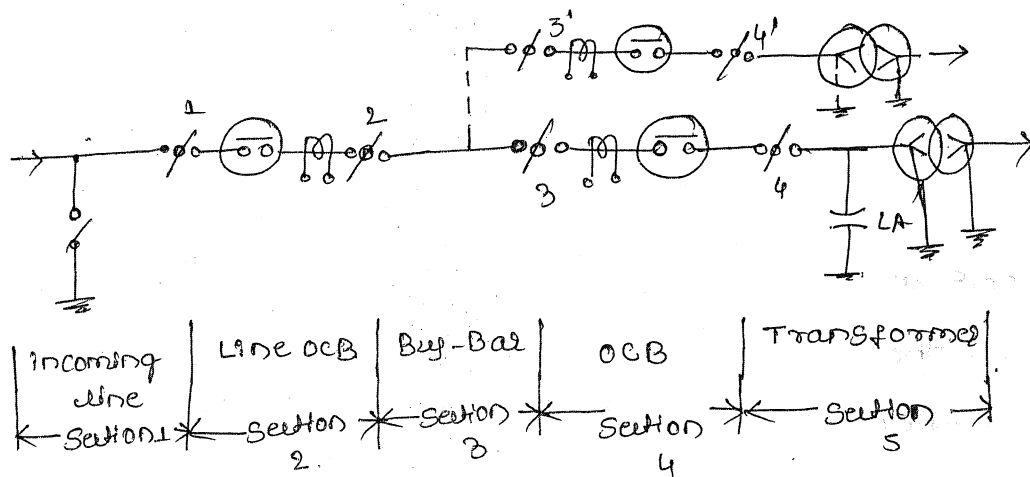 3'
4'
1
2
3
4
LA
Incoming
line
Section 1
Line OCB
Section
2.
Bus-Bar
Section
3
OCB
Section
4
Transformer
Section
5